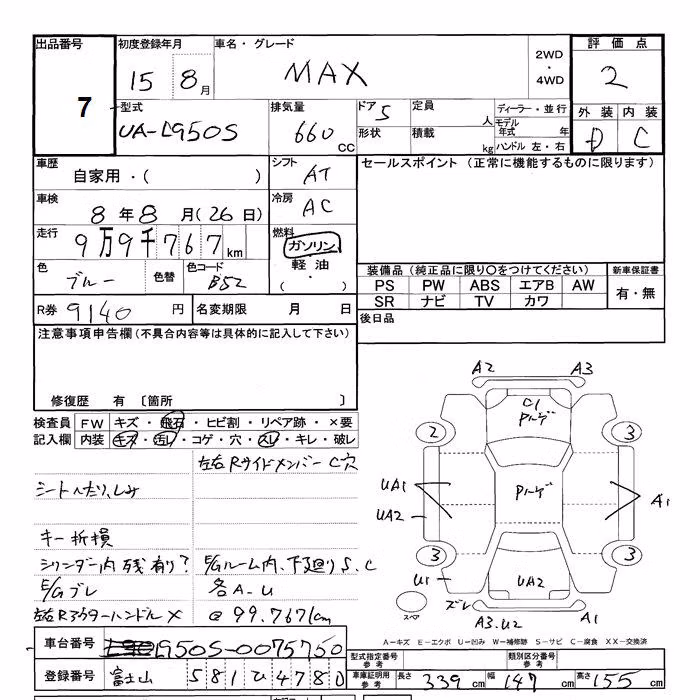 出品番号
7
初度登録年月
15 8月
車名・グレード
MAX
2WD
・
4WD
評価点
2
外装 内装
D C
型式
UA-L950S
排気量
660 CC
ドア 5
形状
定員 人
積載 kg
ディーラー・並行
モデル年式 年
ハンドル 左・右
車歴
自家用・( )
シフト AT
セールスポイント (正常に機能するものに限ります)
車検
8年8月(26日)
冷房 AC
走行
9万9千767km
燃料
ガソリン
軽油
・
( )
色 ブルー
色替
色コード B52
装備品 (純正品に限り○をつけてください)
新車保証書
PS PW ABS エアB AW
SR ナビ TV カワ
有・無
R券 9140円
名変期限 月 日
後日品
注意事項申告欄(不具合内容等は具体的に記入して下さい)
修復歴 有 〔箇所 〕
検査員記入欄
FW キズ・飛石・ヒビ割・リペア跡・×要
内装 キズ・汚レ・コゲ・穴・スレ・キレ・破レ
左右Rサイドメンバー C穴
シートへたり、しみ
キー折損
シリンダー内 残有り? E/Gルーム内、下廻りS、C
E/Gブレ 各A-U
左右Rアウターハンドル× @99.767km
A2 A3
C1
Pハゲ
2 3
UA1
Pハゲ
A1
UA2
3 3
U1
UA2
スペア
ズレ
A3.U2
A1
A−キズ E−エクボ U−凹み W−補修跡 S−サビ C−腐食 XX−交換済
車台番号 L950S-0075750
登録番号 富士山 581 ひ 4780
型式指定番号
参考
類別区分番号
参考
車庫証明用
参考
長さ 339cm 幅 147cm 高さ 155cm